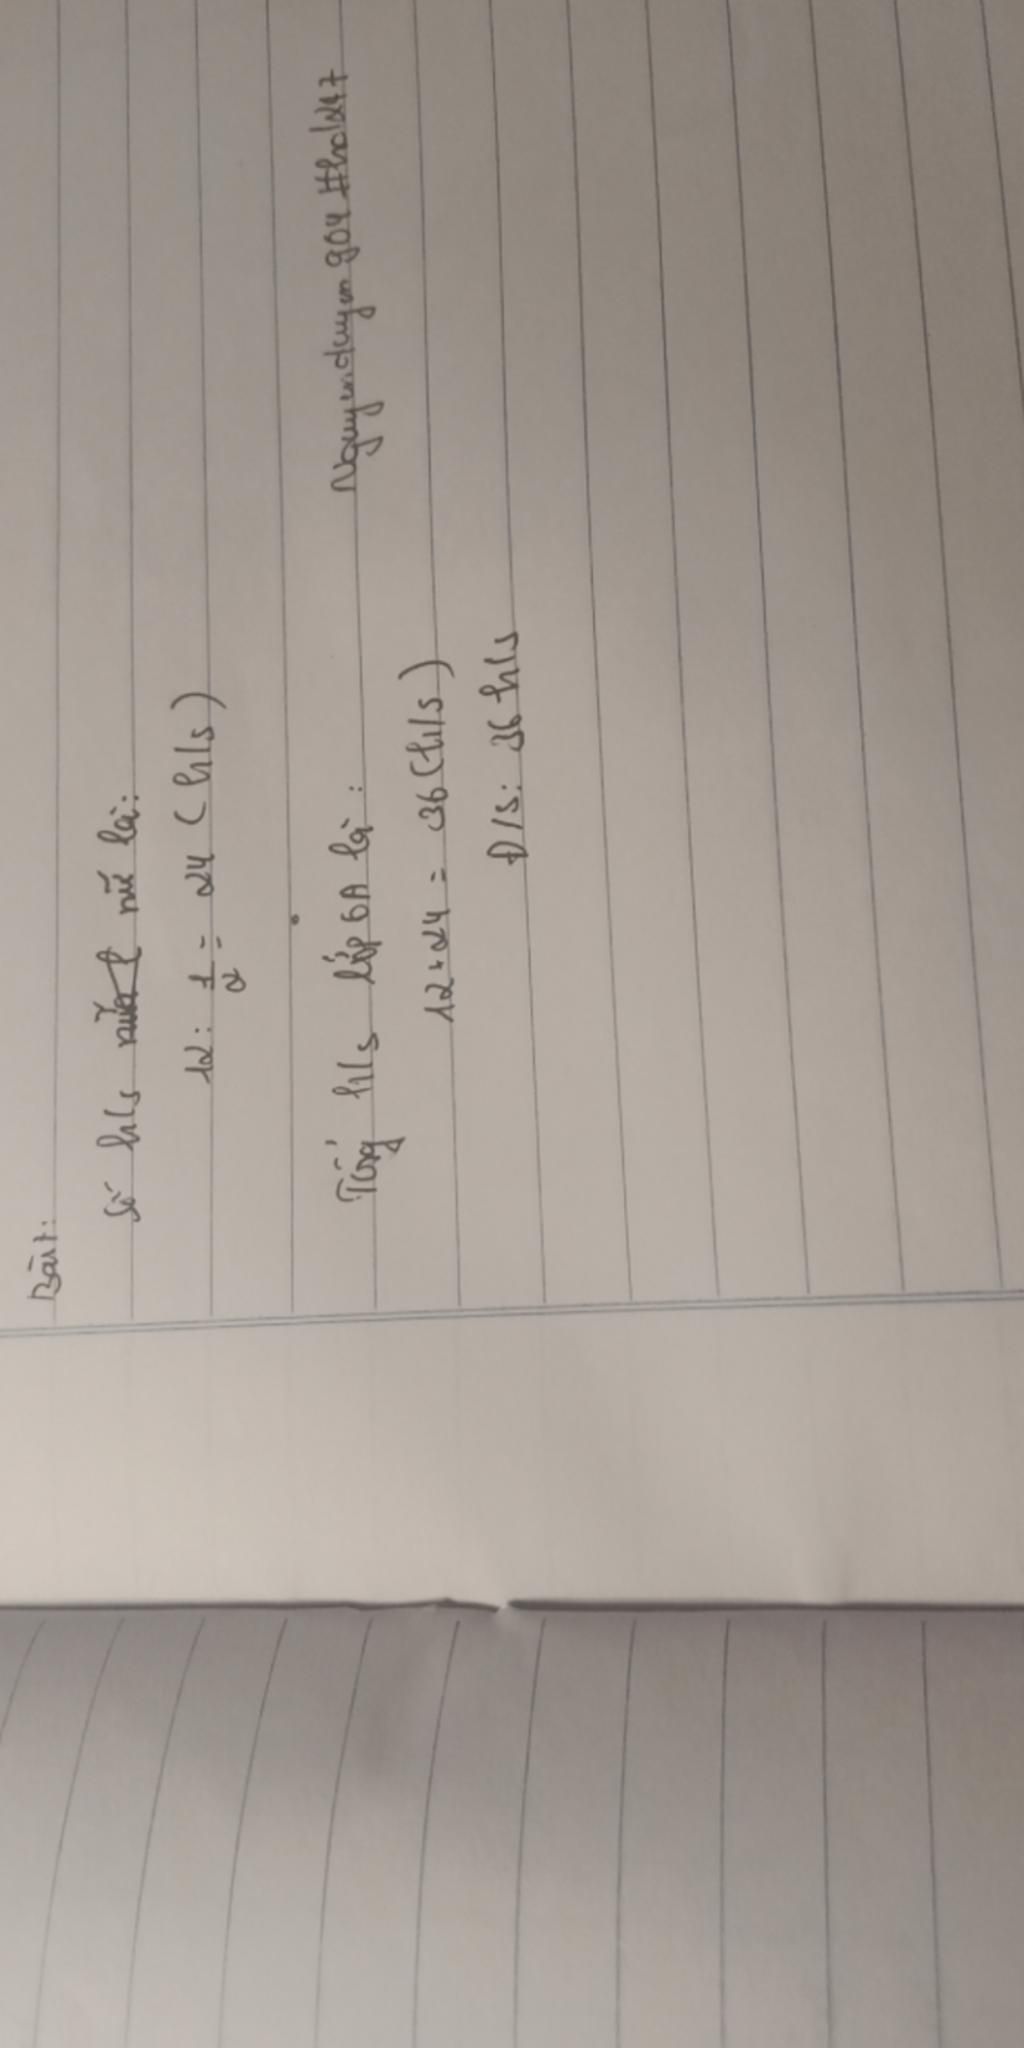 Bài 7:
Số h/s nữ là:
12 : 1/2 = 24 (h/s)
Tổng h/s lớp 6A là:
Nguyenduyen904 #hoidap247
12+24 = 36 (h/s)
Đ/S: 36 h/s